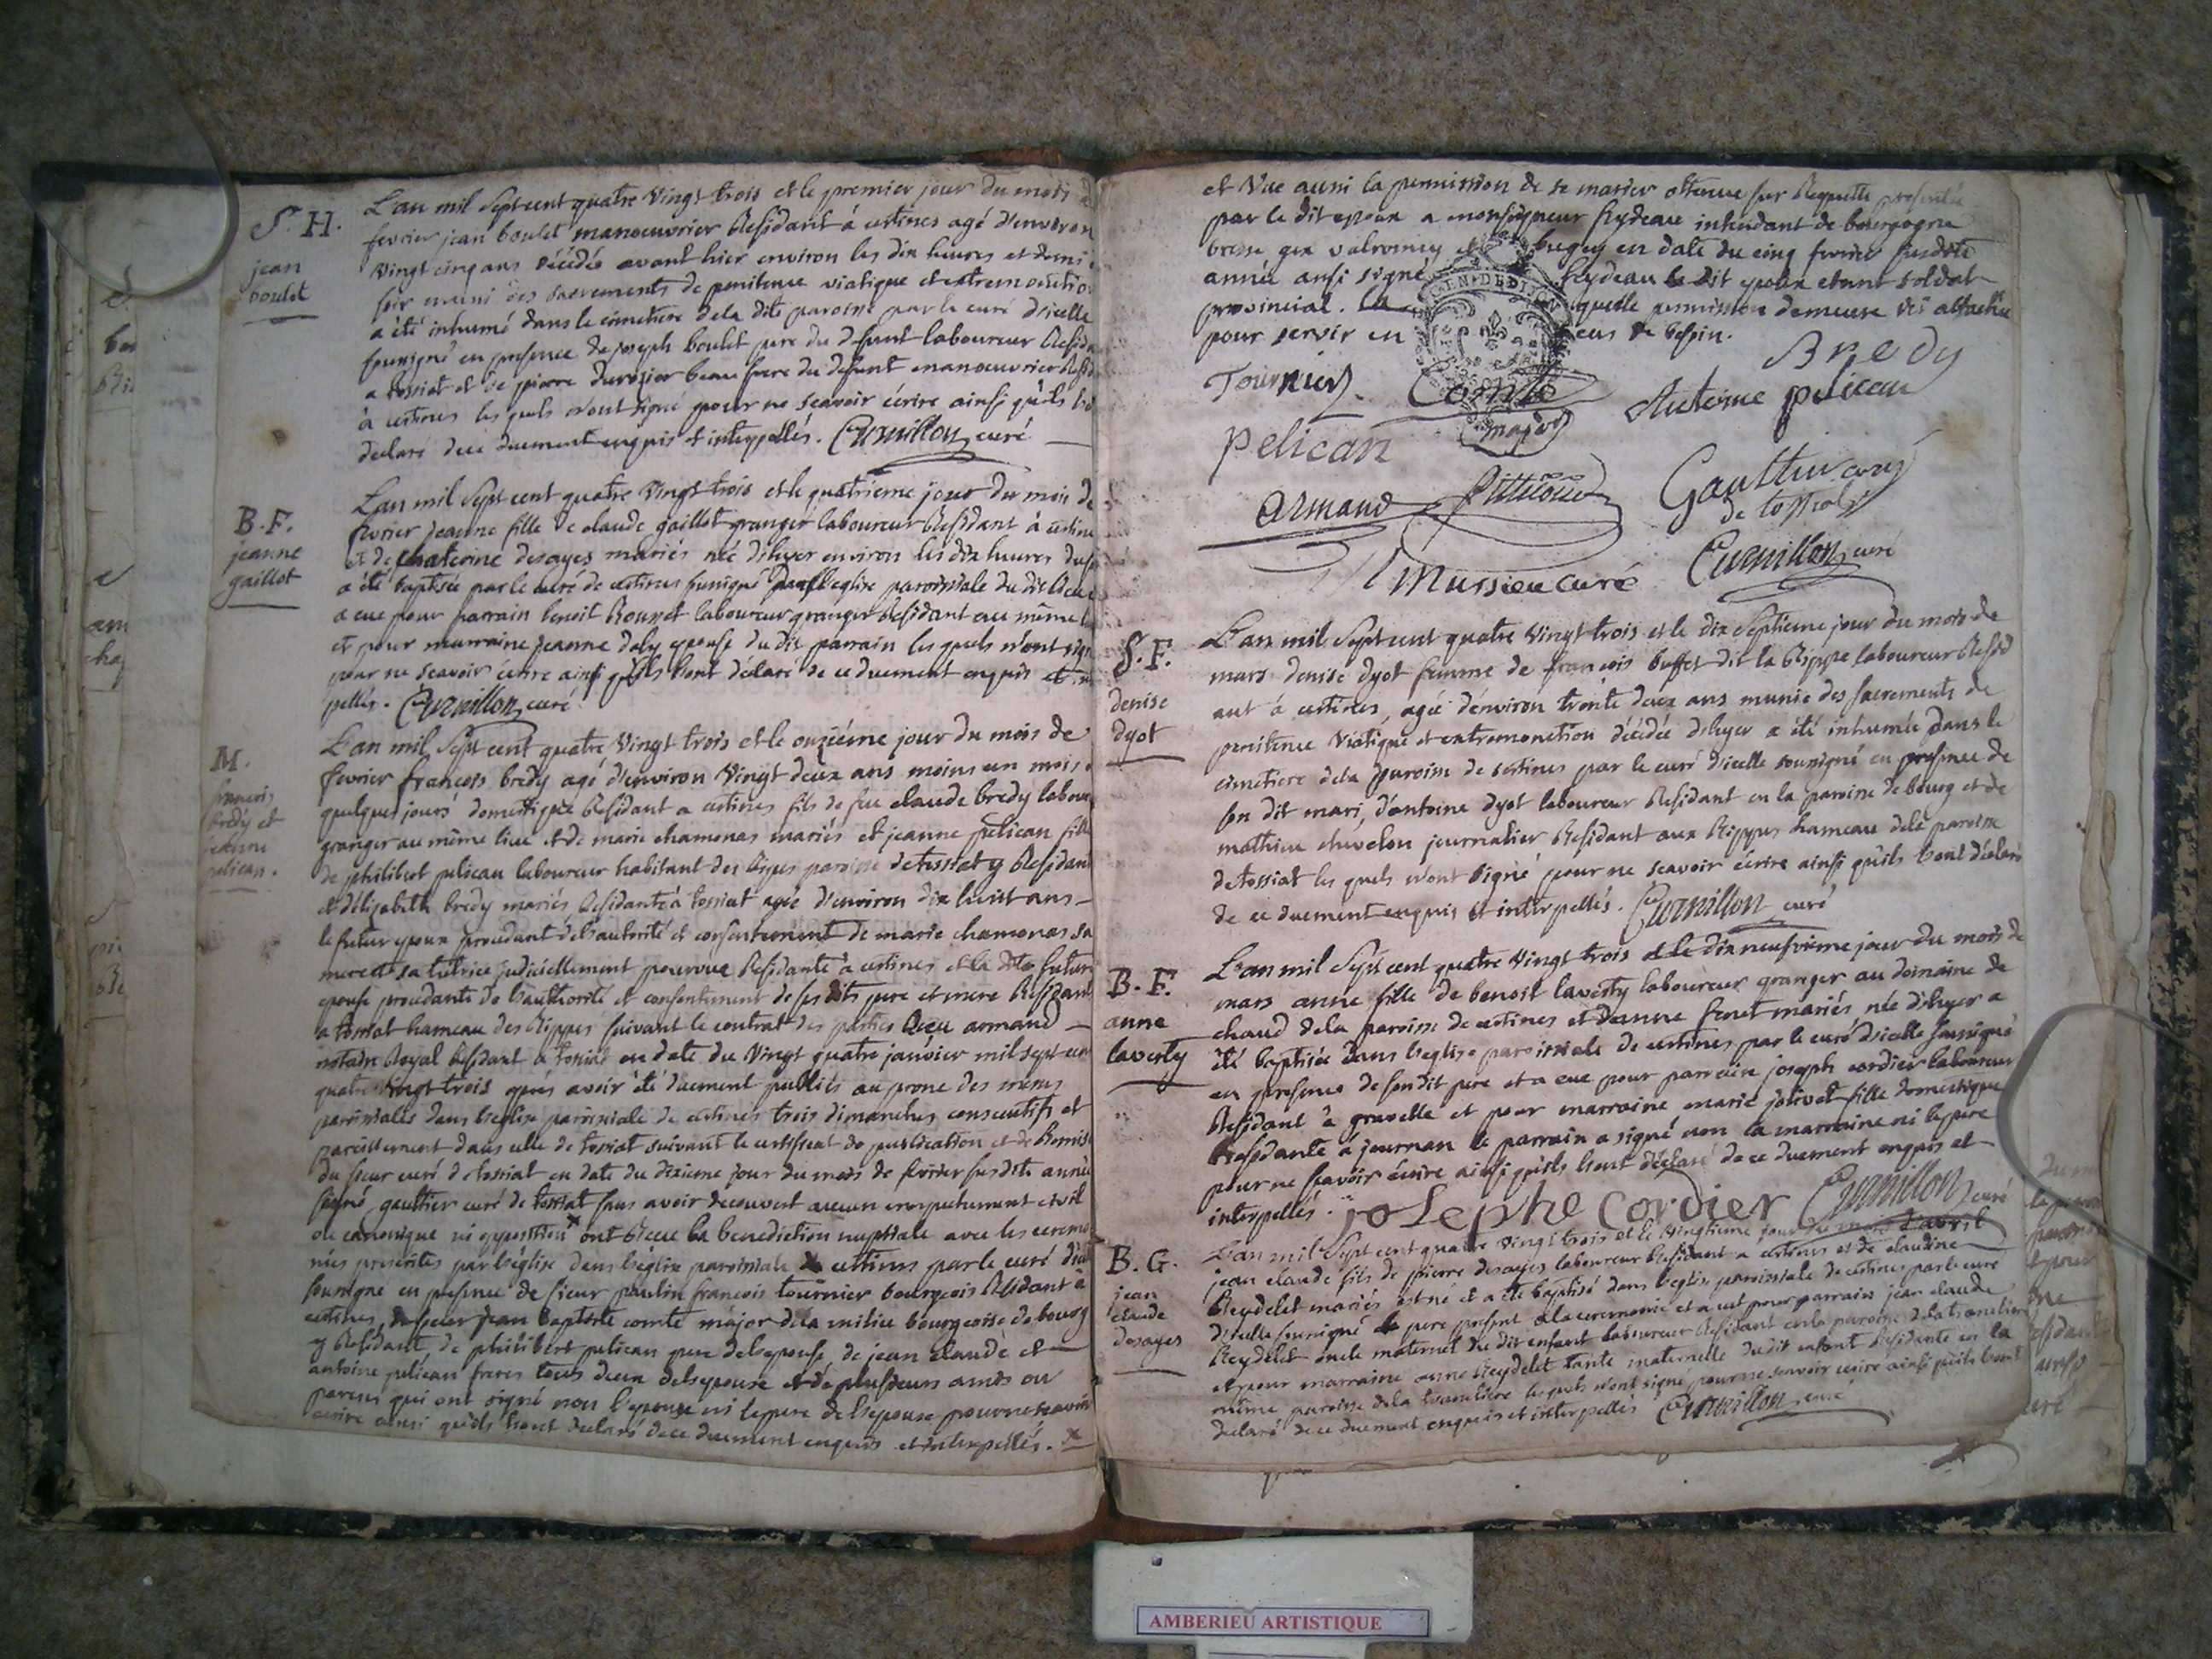 S. H.
jean
boulet
L'an mil sept cent quatre vingt trois et le premier jour du mois de
fevrier jean boulet manoeuvrier Residant à certines agé d'environ
vingt cinq ans décédé avant hier environ les dix heures et demi
soir muni des sacrements de penitence viatique et extremonction
a été inhumé dans le cimetiere de la dite paroisse par le curé d'icelle
sousigné en presence de joseph boulet pere du defunt laboureur Resida
a tossiat et de pierre durozier beau frere du defunt manoeuvrier Resid
à certines les quels n'ont signé pour ne scavoir écrire ainsi qu'ils l'on
declaré de ce duement enquis et interpellés. Curnillon curé
B. F.
jeanne
gaillot
L'an mil sept cent quatre vingt trois et le quatrieme jour du mois de
fevrier jeanne fille de claude gaillot granger laboureur Residant à certine
et de chaterine desayes mariés née d'hyer environ les dix heures du
a été baptisée par le curé de certines sousigné dans l'eglise paroissiale du dit lieu
a eue pour parrain benoit Rousset laboureur granger Residant au même l
et pour marraine jeanne daly epouse du dit parrain les quels n'ont sign
pour ne scavoir écrire ainsi qu'ils l'ont déclaré de ce duement enquis et in
pellés. Curnillon curé
M.
francois
bredy et
jeanne
pelican.
L'an mil sept cent quatre vingt trois et le onziéme jour du mois de
fevrier francois bredy agé d'environ vingt deux ans moins un mois
quelques jours domestique Residant a certines fils de feu claude bredy labour
granger au même lieu et de marie chamonas mariés et jeanne pelican fille
de philibert pelican laboureur habitant des Rippes paroisse de tossiat y Residant
et d'elizabeth bredy mariés Residante à tossiat agée d'environ dix huit ans
le futur epoux procedant de l'autorité et consentement de marie chamonas sa
mere et sa tutrice judiciellement pourvue Residante à certines et la dite future
epouse procedante de l'authorité et consentement de ses dits pere et mere Residant
a tossiat hameau des Rippes suivant le contrat des parties Receu armand
notaire Royal Residant a tossiat en date du vingt quatre janvier mil sept cen
quatre vingt trois après avoir été duement publiés au prone des messes
paroissiales dans l'eglise paroissiale de certines trois dimanches consecutifs et
pareillement dans celle de tossiat suivant le certificat de publication et de Remise
du sieur curé de tossiat en date du dixieme jour du mois de fevrier susdite année
signé gaultier curé de tossiat sans avoir decouvert aucun empechement civil
ou canonique ni opposition x ont Receu la benediction nuptiale avec les ceremo
nies prescrites par l'église dans l'église paroissiale de certines par le curé d'ic
sousigné en presence de sieur paulin francois tournier bourgeois Residant à
certines, de sieur jean baptiste comte major de la milice bourgeoise de bourg
y Residant, de philibert pelican pere de l'epouse, de jean claude et
antoine pelican freres tous deux de l'epouse et de plusieurs amis ou
parens qui ont signé non l'epouse ni le pere de l'epouse pour ne scavoir
écrire ainsi qu'ils l'ont declaré de ce duement enquis et interpellés. x
et vue aussi la permission de se marier obtenue sur Requette presentée
par le dit epoux a monseigneur feydeau intendant de bourgogne
bresse gex valromey et bugey en date du cinq fevrier susdite
année ansi signé feydeau le dit epoux etant soldat
provincial. la quelle permission demeure ici attachée
pour servir en cas de besoin.
Bredy
Tournier Comte Antoine pelican
major
pelican
armand Gaulttier curé
de tossiat
Mussieu curé Curnillon curé
S. F.
denise
dyot
L'an mil sept cent quatre vingt trois et le dix septieme jour du mois de
mars denise dyot femme de francois buffet dit la Rippe laboureur Resid
ant à certines, agée d'environ trente deux ans munie des sacrements de
penitence viatique et extremonction décédée d'hyer a été inhumée dans le
cimetiere de la paroisse de certines par le curé d'icelle sousigné en presence de
son dit mari, d'antoine dyot laboureur Residant en la paroisse de bourg et de
mathieu chevelon journalier Residant aux Rippes hameau de la paroisse
de tossiat les quels n'ont signé pour ne scavoir écrire ainsi qu'ils l'ont déclaré
de ce duement enquis et interpellés. Curnillon curé
B. F.
anne
laverty
L'an mil sept cent quatre vingt trois et le dix neufvieme jour du mois de
mars anne fille de benoit laverty laboureur granger au domaine de
chaud de la paroisse de certines et d'anne fenet mariés née d'hyer a
été baptisée dans l'eglise paroissiale de certines par le curé d'icelle sousigné
en presence de son dit pere et a eue pour parrain joseph cordier laboureur
Residant à gravelle et pour marraine marie jolivet fille domestique
Residante à journan le parrain a signé non la marraine ni le pere
pour ne scavoir écrire ainsi qu'ils l'ont déclaré de ce duement enquis et
interpellés. joSephe cordier Curnillon curé
B. G.
jean
claude
desayes
L'an mil sept cent quatre vingt trois et le vingtieme jour du mois d'avril
jean claude fils de pierre desayes laboureur Residant a certines et de claudine
Reydelet mariés est né et a été baptisé dans l'eglise paroissiale de certines par le curé
d'icelle sousigné le pere present a la ceremonie et a eut pour parrain jean claude
Reydelet oncle maternel du dit enfant laboureur Residant en la paroisse de la tranclière
et pour marraine anne Reydelet tante maternelle du dit enfant Residante en la
même paroisse de la tranclière les quels n'ont signé pour ne scavoir écrire ainsi qu'ils l'ont
declaré de ce duement enquis et interpellés Curnillon curé
AMBERIEU ARTISTIQUE